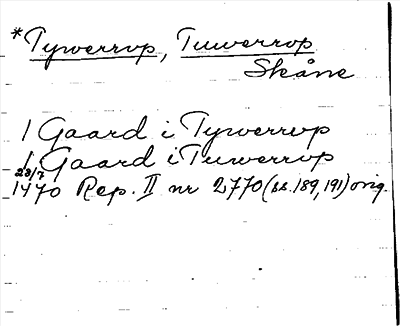 *Tywerrup, Tuwerrop
Skåne
1 Gaard i Tywerrup
1 Gaard i Tuwerrop
23/7
1470 Rep. II nr 2770 (ss. 189, 191) orig.